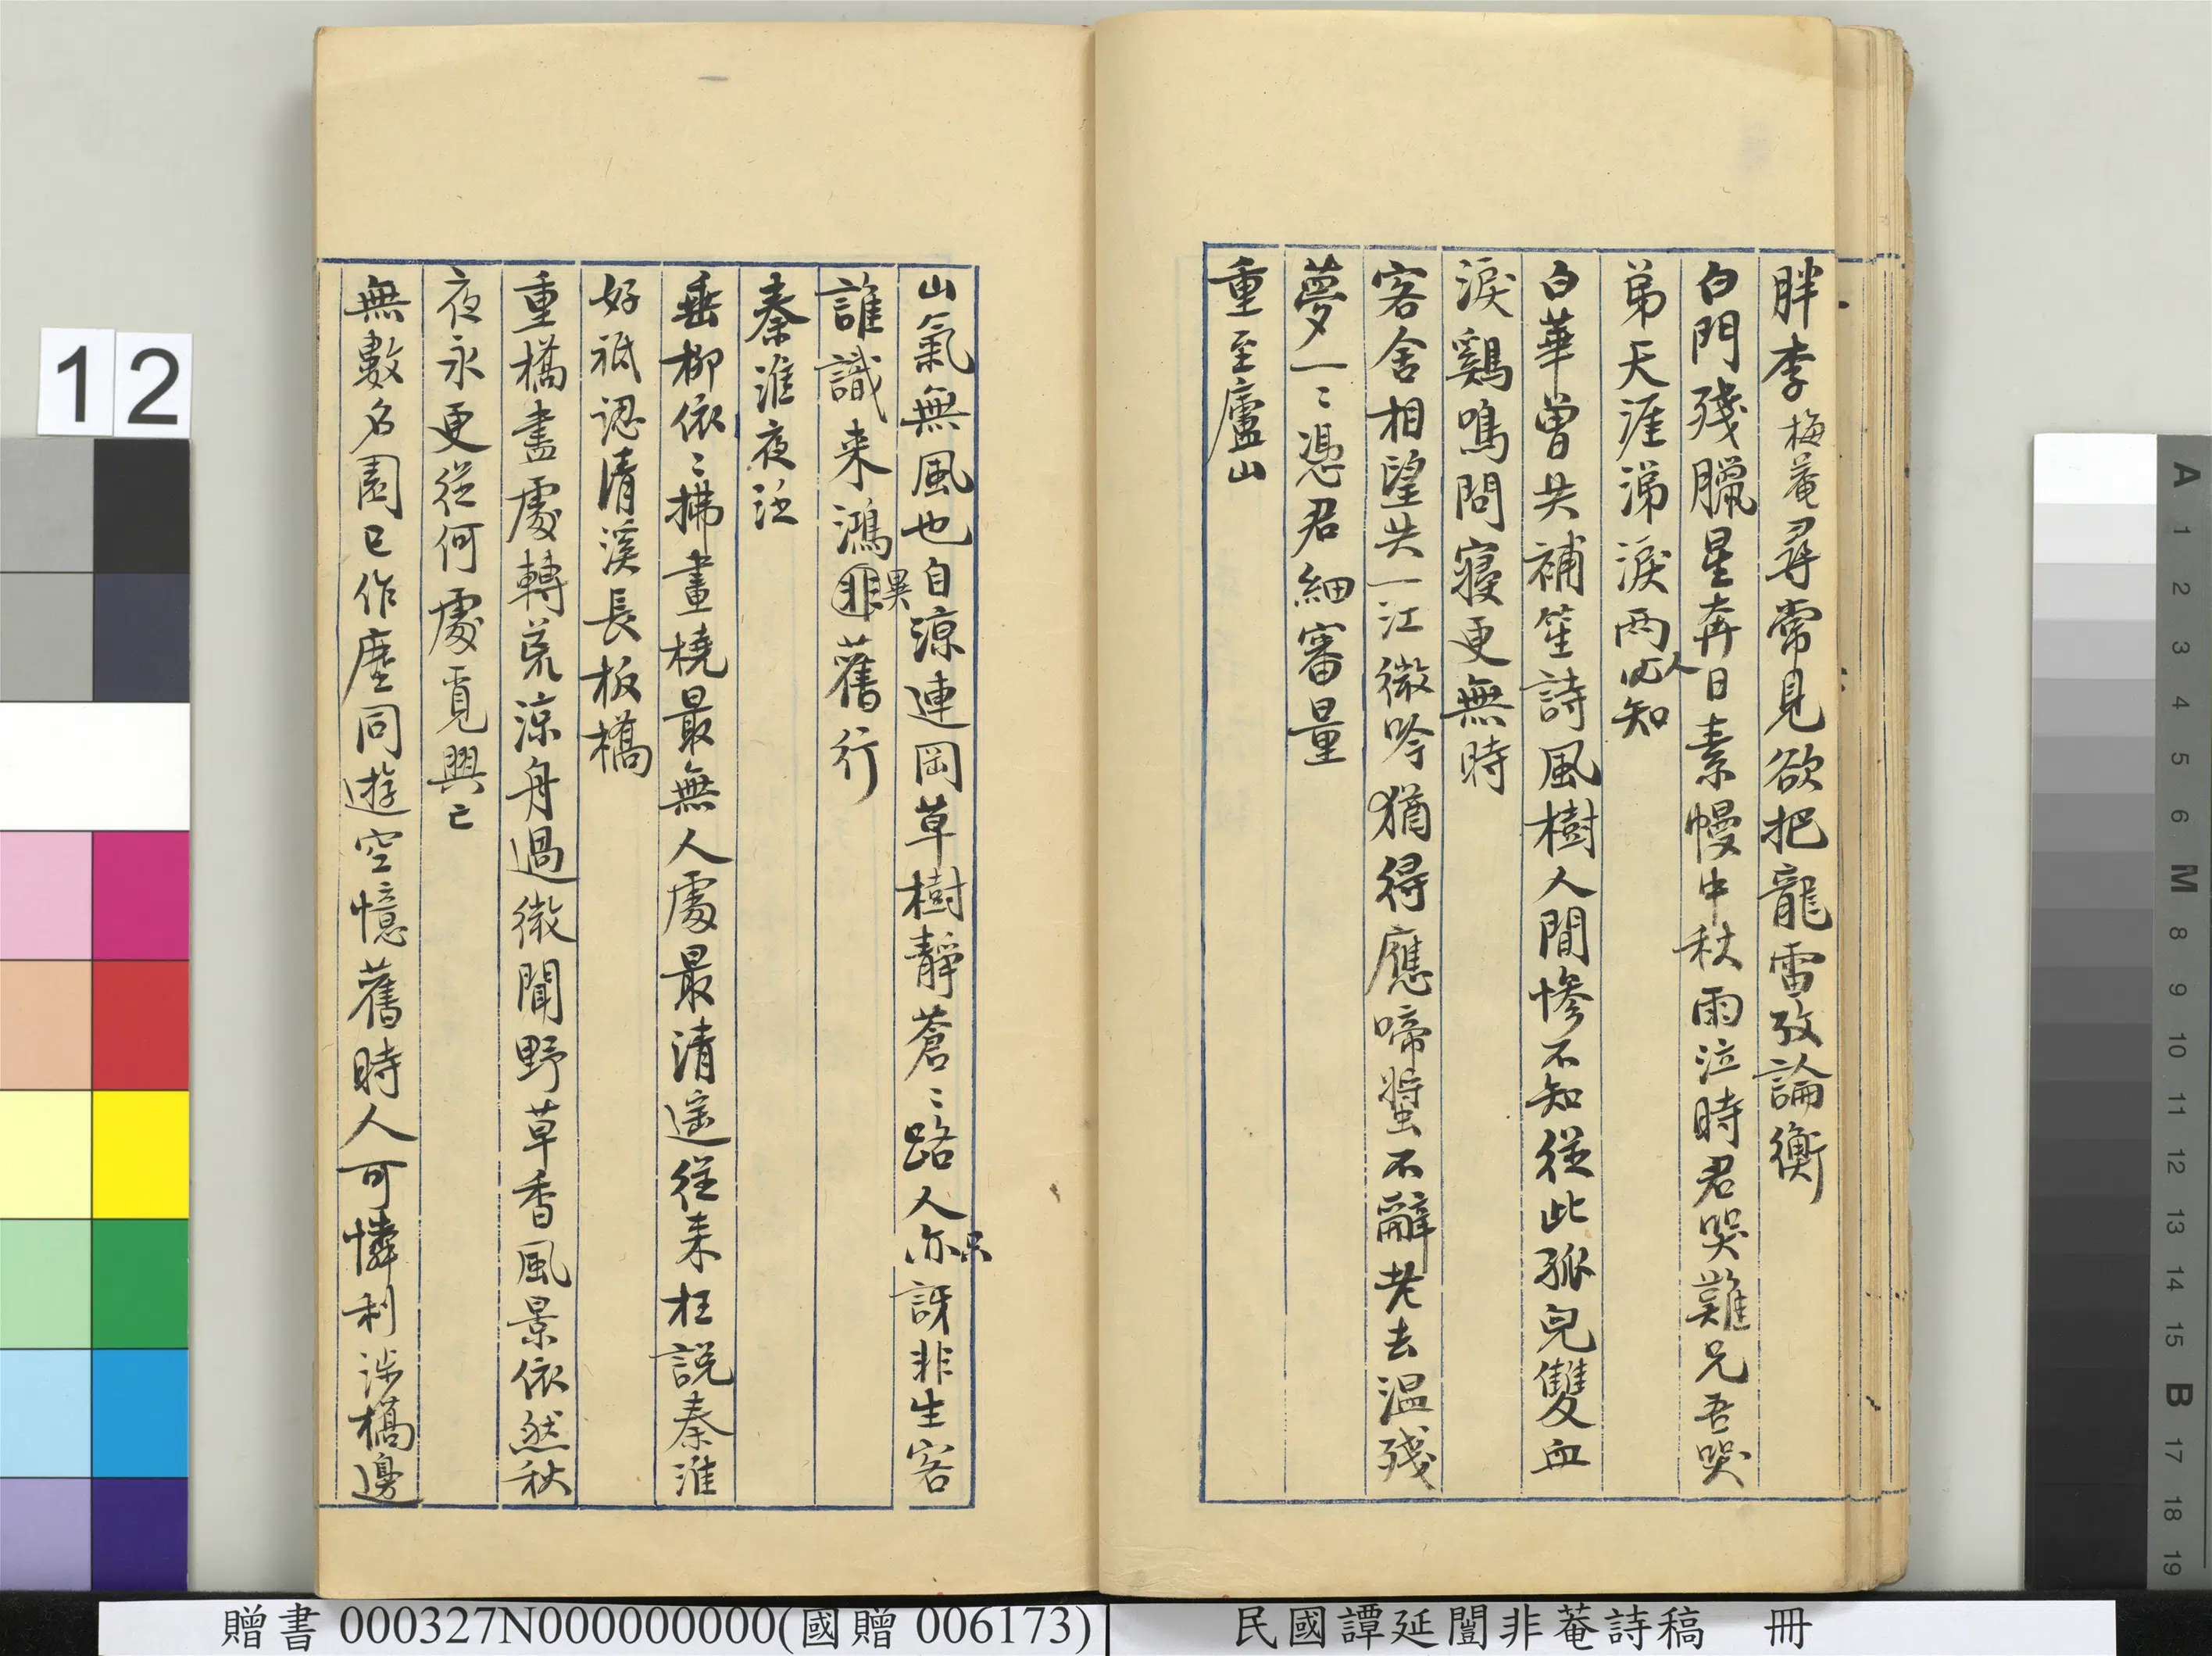 胖李梅菴尋常見欲把龍雷攷論衡
白門殘臘星奔日素幔中秋雨泣時君哭難兄吾哭
弟天涯涕淚兩人知
白華曾共補笙詩風樹人間慘不知從此孤兒雙血
淚鷄鳴問寢更無時
客舍相望共一江微吟猶得應啼螿不辭老去溫殘
夢一〻憑君細審量
重至廬山
山氣無風也自涼連岡草樹靜蒼〻路人亦只訝非生客
誰識来鴻非異舊行
秦淮夜泛
垂柳依〻拂畫橈最無人處最清遥從来枉説秦淮
好祗認清溪長板橋
重橋盡處轉荒涼舟過微聞野草香風景依然秋
夜永更從何處覓興亡
無數名園已作塵同遊空憶舊時人可憐利涉橋邊
12
贈書 000327N000000000(國贈 006173)
民國譚延闓非菴詩稿 冊
A 1 2 3 4 5 6 M 8 9 10 11 12 13 14 15 B 17 18 19